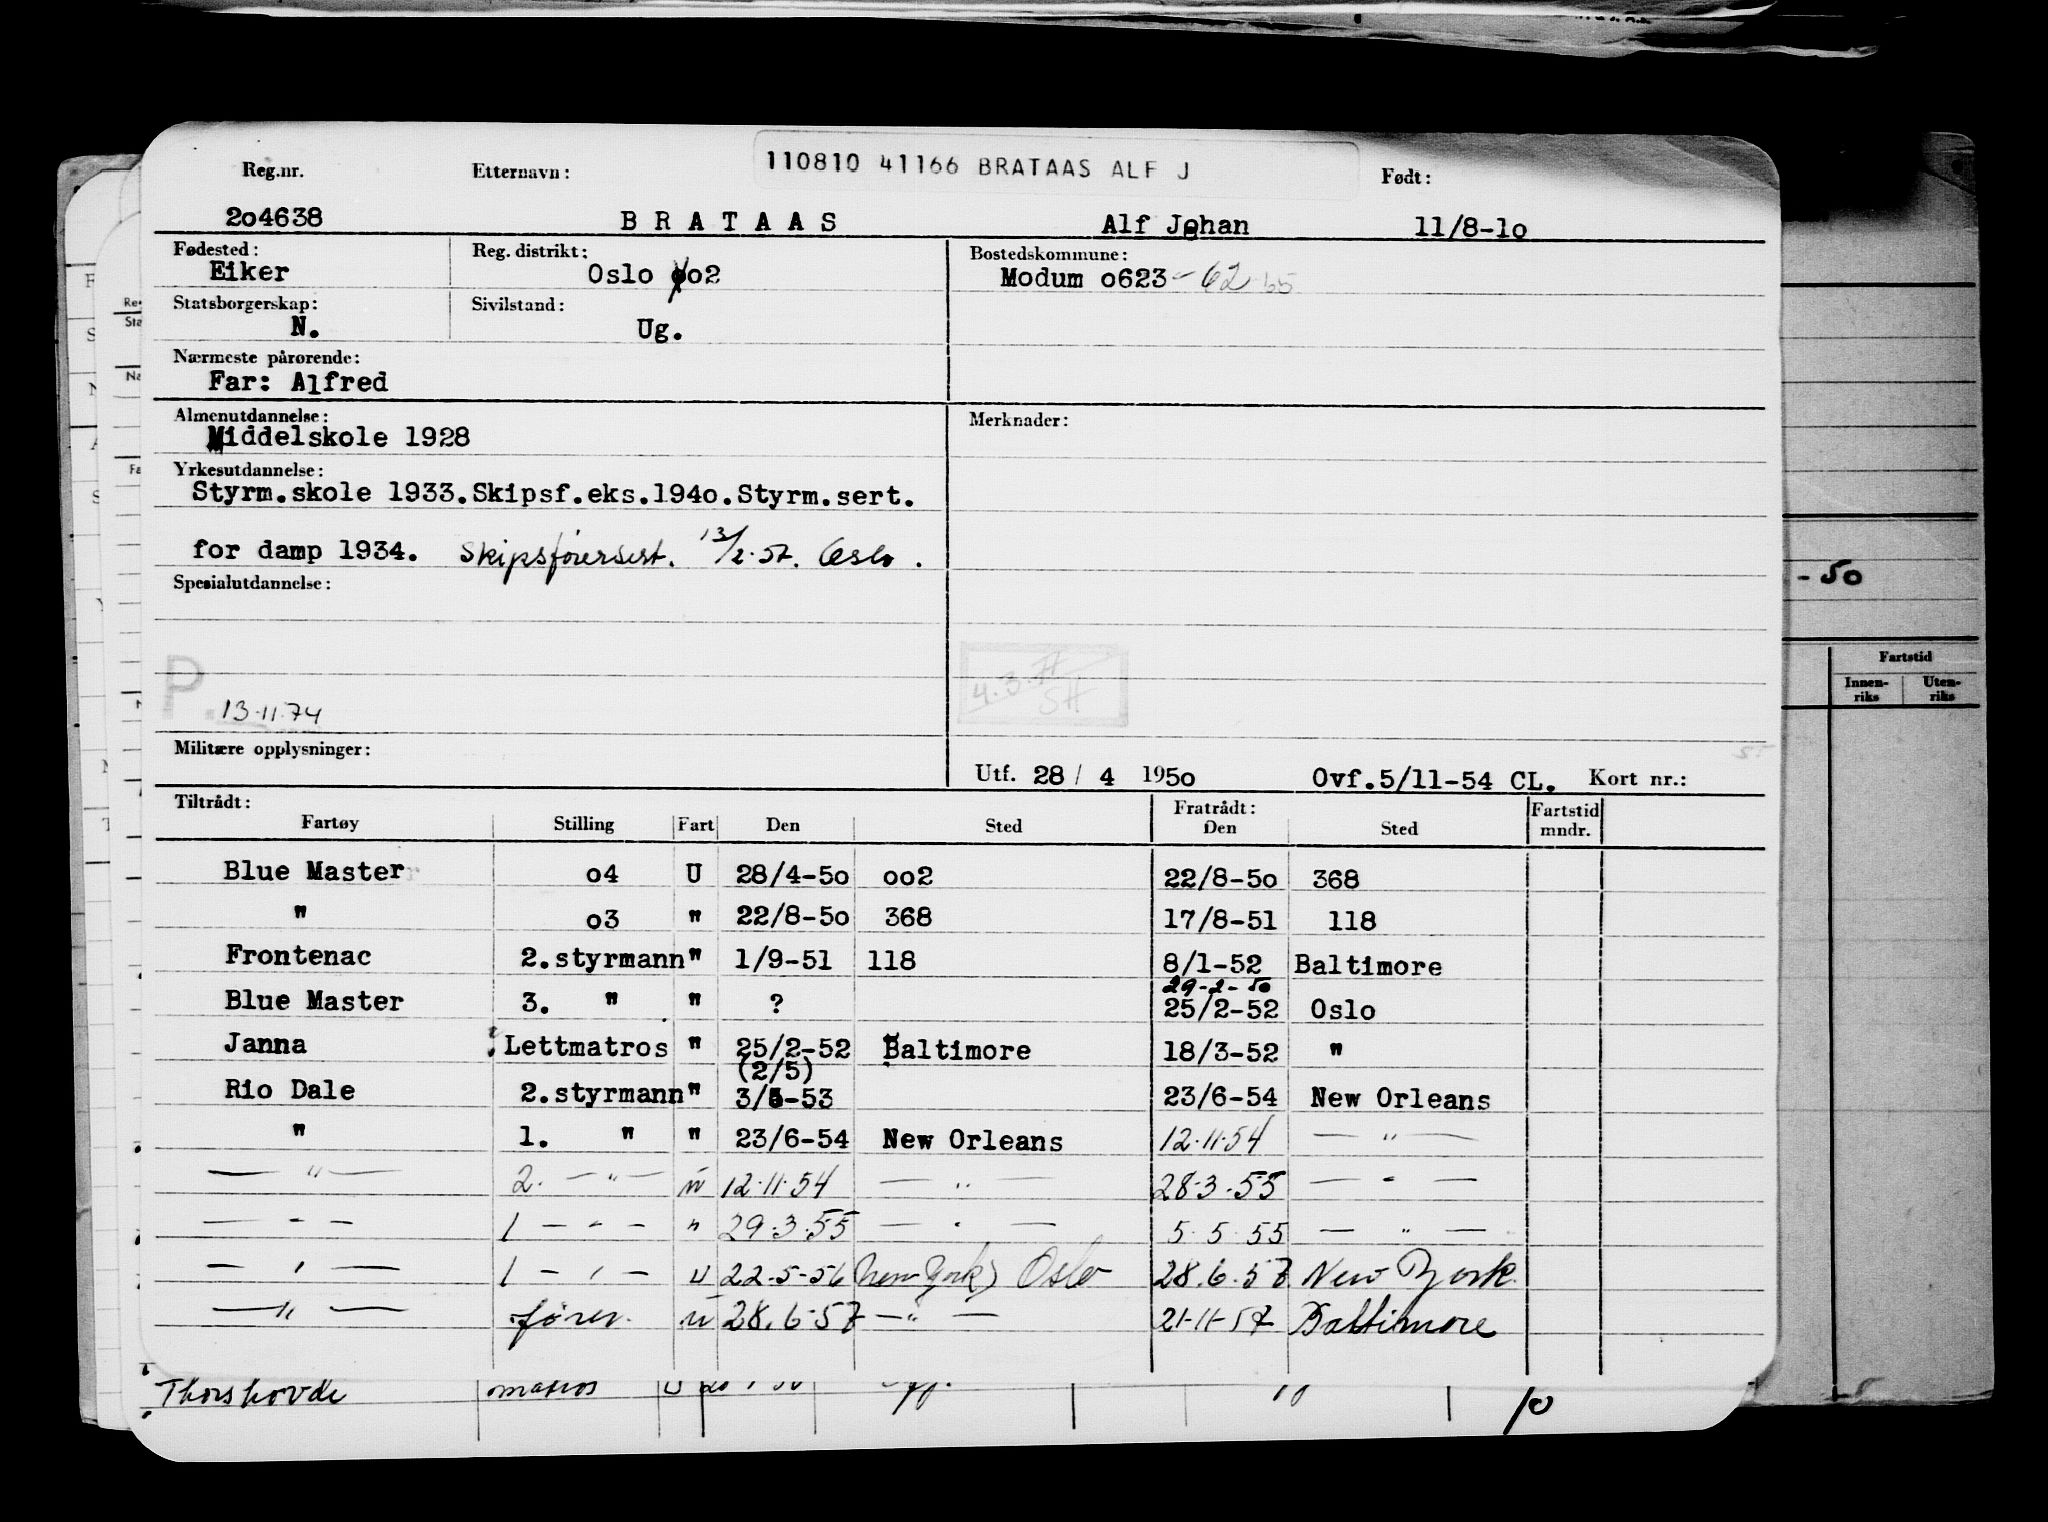 110810 41166 BRATAAS ALF J
Reg.nr. Etternavn: Født:
2o4638 B R A T A A S Alf Johan 11/8-1o
Fødested: Reg. distrikt: Bostedskommune:
Eiker Oslo oo2 Modum o623 - 62
Statsborgerskap: Sivilstand:
N. Ug.
Nærmeste pårørende:
Far: Alfred
Almenutdannelse: Merknader:
Middelskole 1928
Yrkesutdannelse:
Styrm.skole 1933.Skipsf.eks.194o.Styrm.sert.
for damp 1934. Skipsførersert. 13/2-57. Oslo.
Spesialutdannelse:
- 5o
P.
13.11.74
Fartstid
Innen-riks Uten-riks
Militære opplysninger:
Utf. 28 / 4 195o Ovf.5/11-54 CL. Kort nr.:
Tiltrådt: Fratrådt: Fartstid
Fartøy Stilling Fart Den Sted Den Sted mndr.
Blue Master o4 U 28/4-5o oo2 22/8-5o 368
" o3 " 22/8-5o 368 17/8-51 118
Frontenac 2.styrmann " 1/9-51 118 8/1-52 Baltimore
29-2-50
Blue Master 3. " " ? 25/2-52 Oslo
Janna Lettmatros " 25/2-52 Baltimore 18/3-52 "
(2/5)
Rio Dale 2.styrmann " 3/5-53 23/6-54 New Orleans
" 1. " " 23/6-54 New Orleans 12.11.54 — " —
— " — 2. — " — u 12.11.54 — " — 28.3.55 — " —
— " — 1 — " — " 29.3.55 — " — 5.5.55 — " —
— " — 1 — " — u 22-5-56 New York) Oslo 28.6.57 New York.
— " — fører. u 28.6-57 — " — 21-11-57 Baltimore
Thorshovdi matros U 10